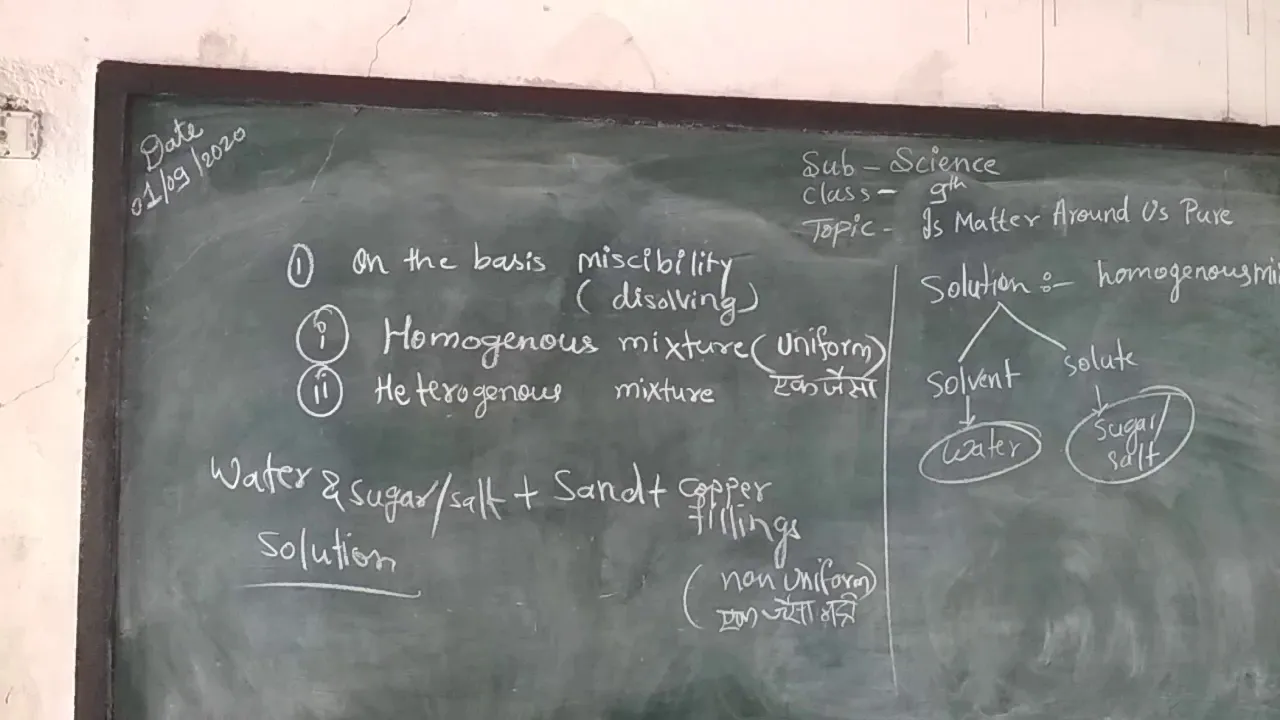 Date
01/09/2020
Sub - Science
Class - 9th
Topic - Is Matter Around Us Pure
① On the basis miscibility
(disolving)
ⓘ Homogenous mixture (Uniform)
ⓘⓘ Heterogenous mixture एक जैसा
Water & sugar/salt + Sand + copper
fillings
Solution
(non uniform)
एक जैसा नहीं
Solution :- homogenous mi
Solvent Solute
Water Sugar/
salt